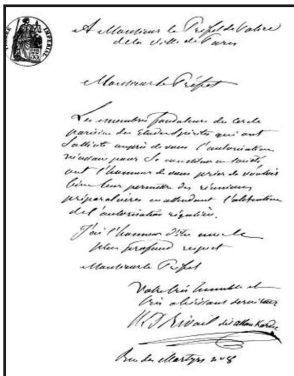 A Monsieur le Préfet de Police
de la Ville de Paris
Monsieur le Préfet
Les membres fondateurs du Cercle
parisien des Etudes spirites qui ont
sollicité auprès de vous l'autorisation
nécessaire pour se constituer en société,
ont l'honneur de vous prier de vouloir
bien leur permettre des réunions
préparatoires en attendant l'obtention
de l'autorisation régulière.
J'ai l'honneur d'être avec le
plus profond respect
Monsieur le Préfet
Votre très humble et
très obéissant serviteur
H L D Rivail dit Allan Kardec
Rue des Martyrs n° 8